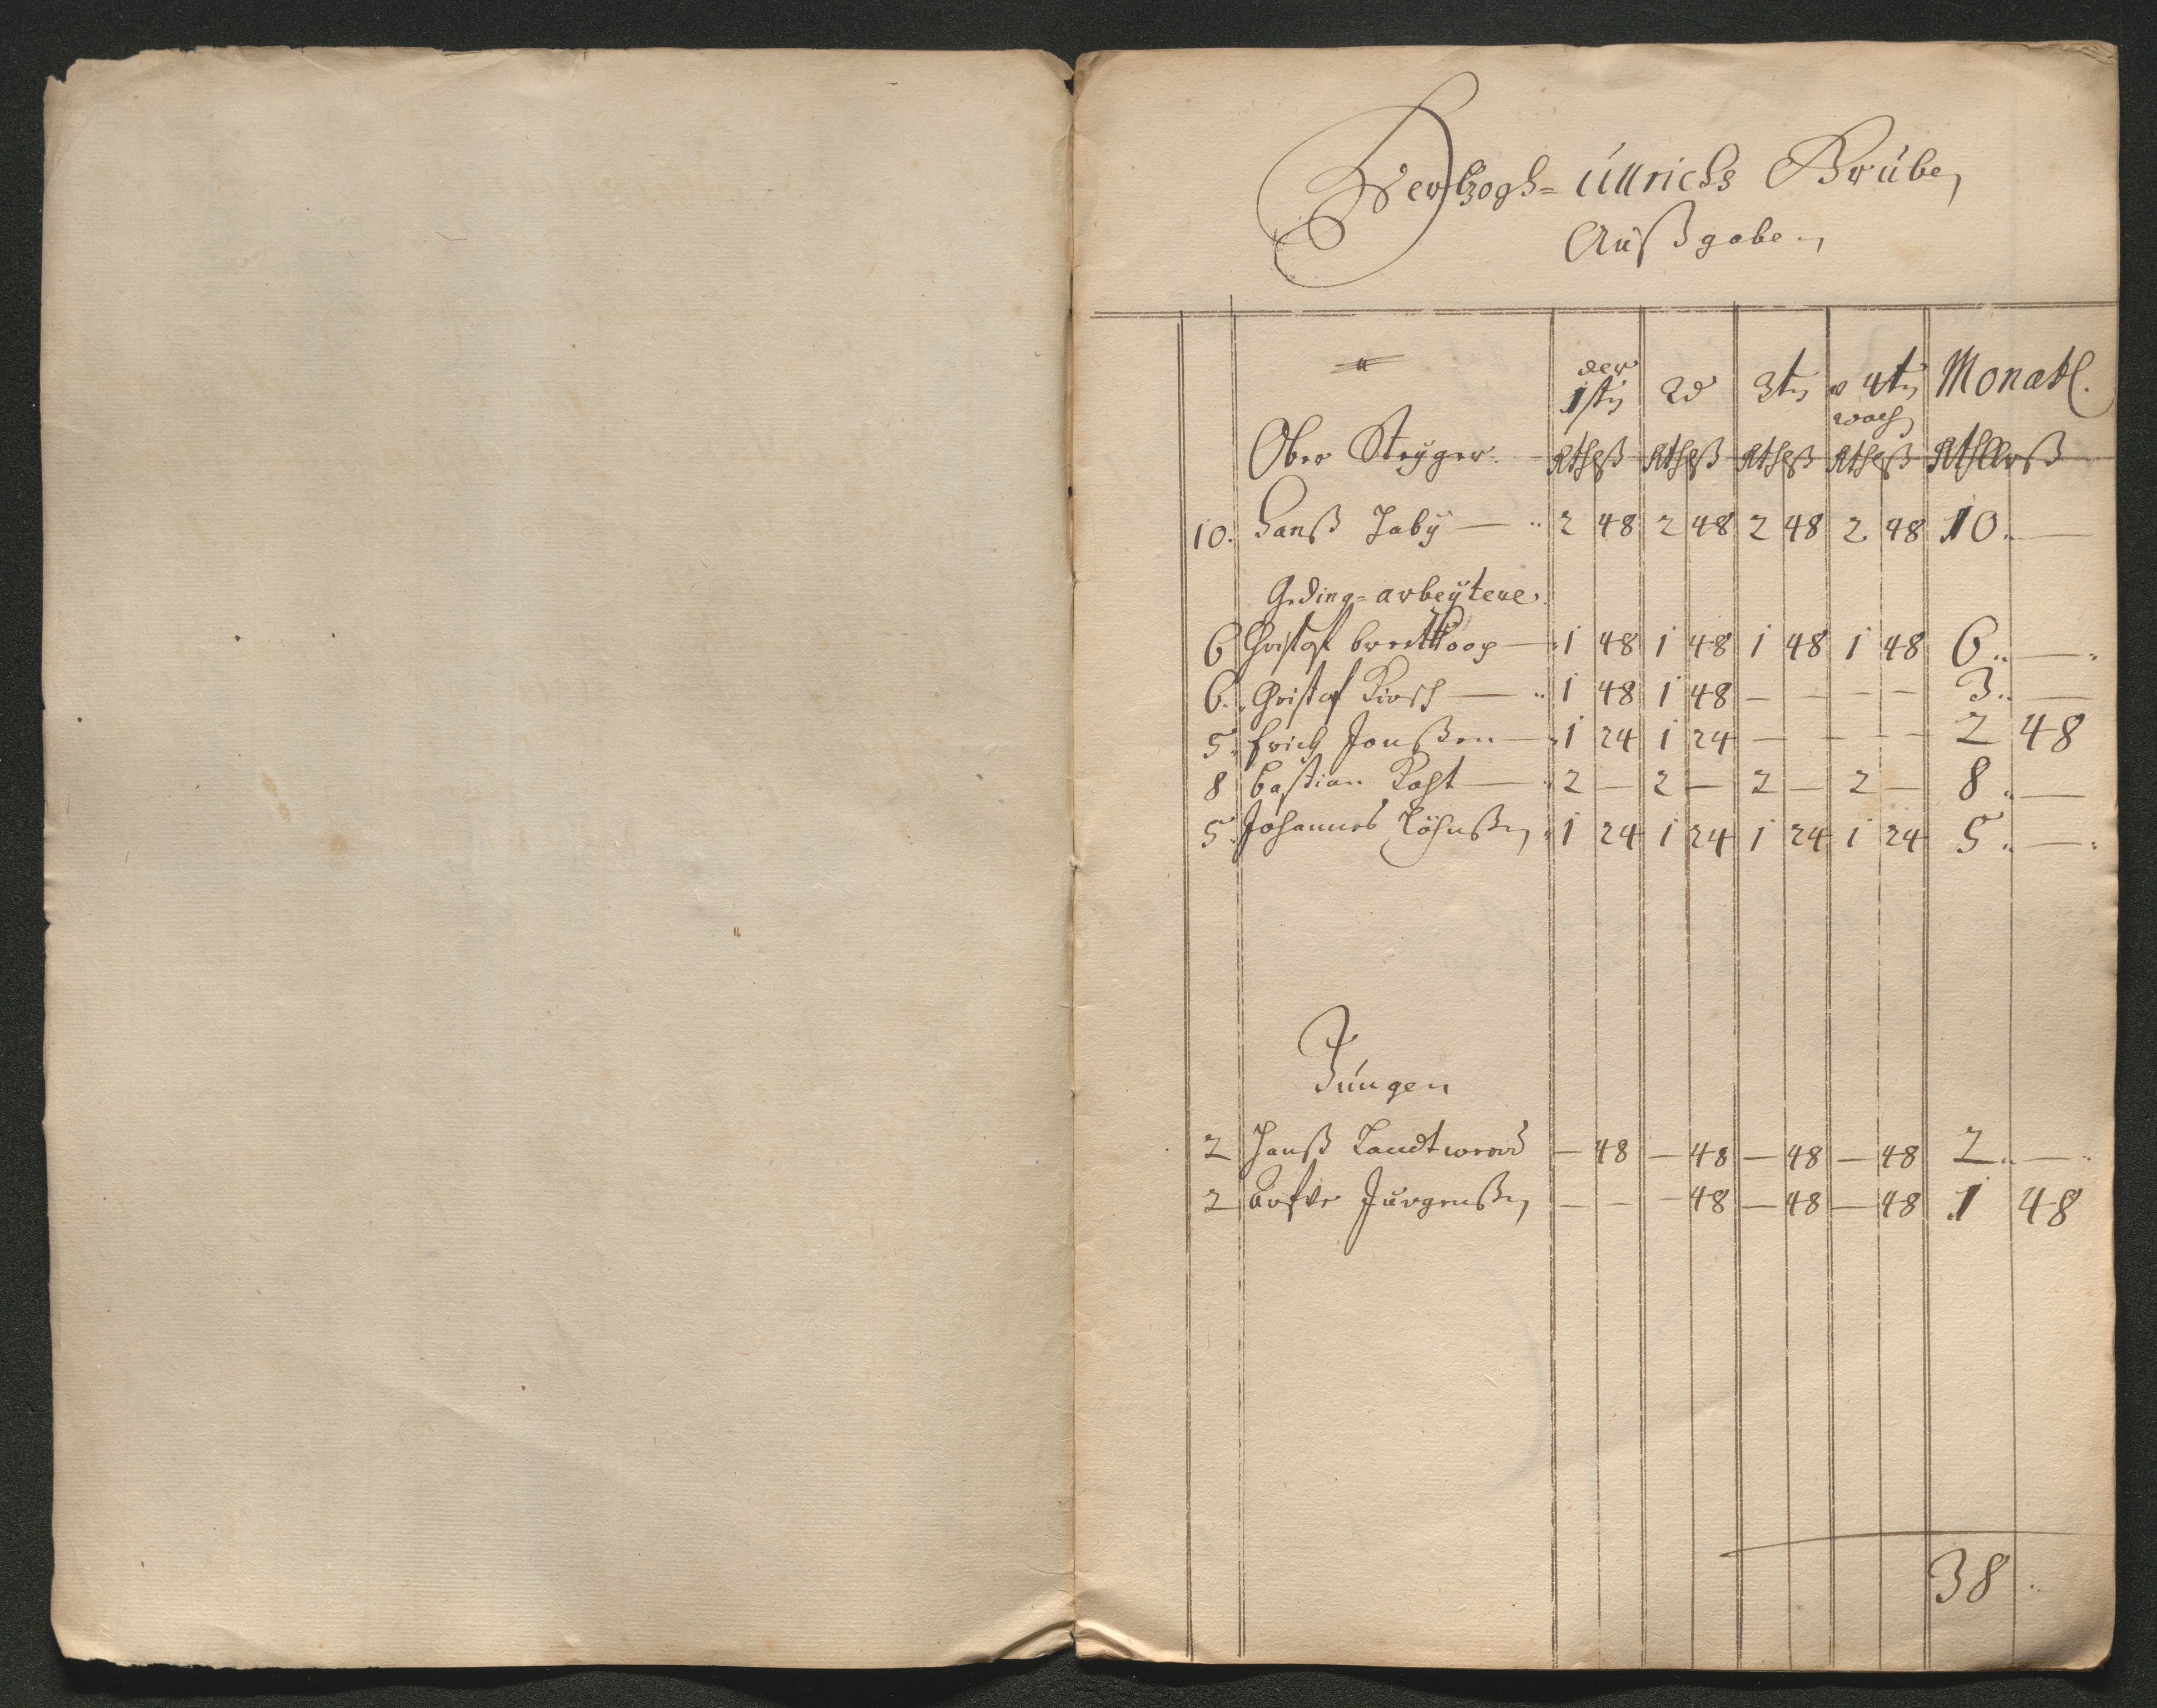 Hertzogs= Ullrichs Grube,
Außgaben
der 1stn 2d 3tn v 4tn woch Monatl.
Ober Steyger. Rth ß Rth ß Rth ß Rth ß Rthllr ß
10. Hanß Jaby — 2 48 2 48 2 48 2 48 10. —
Geding=arbeytere.
6 Christof breitkoop — 1 48 1 48 1 48 1 48 6 —
6. Christof Kirsch — 1 48 1 48 — — — — 3 —
5. Erich Jonßen — 1 24 1 24 — — — — 2 48
8 bastian Rost — 2 — 2 — 2 — 2 — 8 —
5. Johannes 1 24 1 24 1 24 1 24 5 —
Jungen
2 Hanß — 48 — 48 — 48 — 48 2 —
2 Jürgenßen — — — 48 — 48 — 48 1 48
38